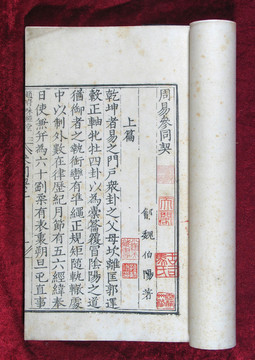 周易參同契
郇魏伯陽著
上篇
乾坤者易之門戶衆卦之父母坎離匡郭運
轂正軸牝牡四卦以為橐籥覆冒陰陽之道
猶御者之執銜轡有準繩正規矩隨軌轍處
中以制外數在律歷紀月節有五六經緯奉
日使兼并為六十剛柔有表裏朔旦屯直事